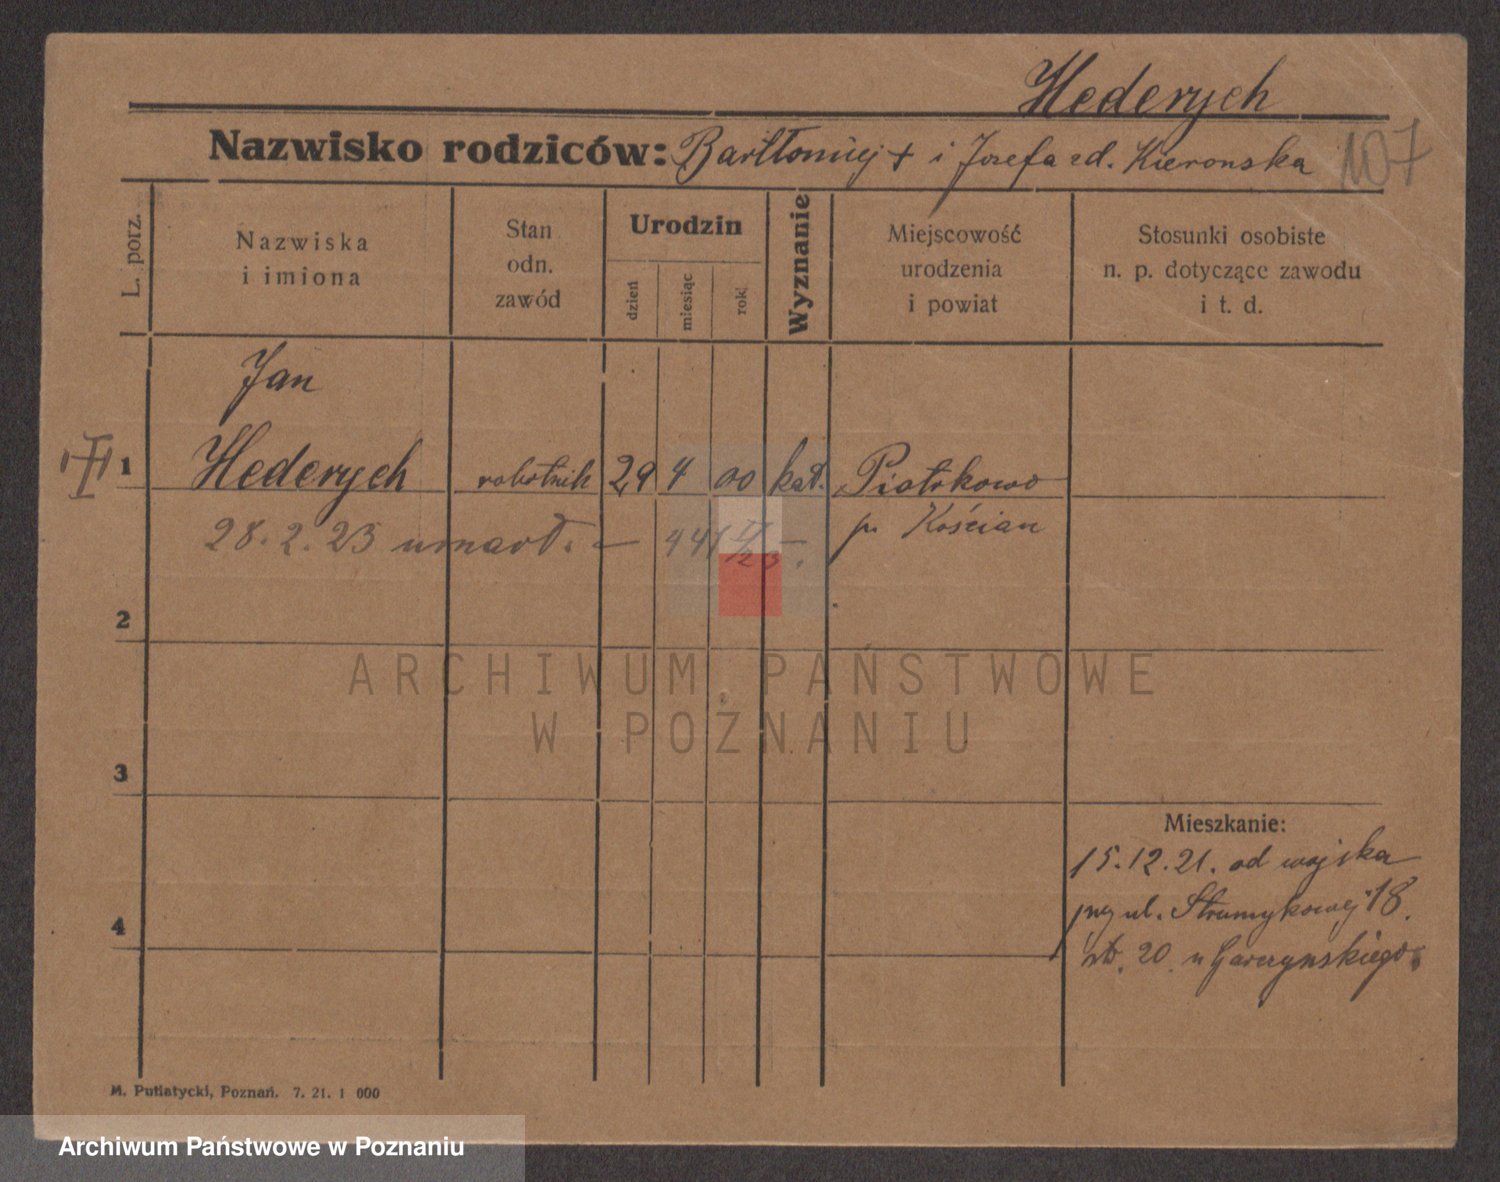 Hederych
Nazwisko rodziców: Bartłomiej + i Józefa zd. Kieronska
107
L. porz.
Nazwiska
i imiona
Stan
odn.
zawód
Urodzin
dzień
miesiąc
rok
Wyznanie
Miejscowość
urodzenia
i powiat
Stosunki osobiste
n. p. dotyczące zawodu
i t. d.
Jan
1 Hederych robotnik 29 4 00 kat. Piotrkowo
28.2.23 umarł. — 441 II/23 — p. Kościan
2
3
4
ARCHIWUM PAŃSTWOWE
W POZNANIU
Mieszkanie:
15.12.21. od wojska
przy ul. Strumykowej 18.
st. 20 u Garczynskiego.
M. Putiatycki, Poznań. 7. 21. 1 000
Archiwum Państwowe w Poznaniu